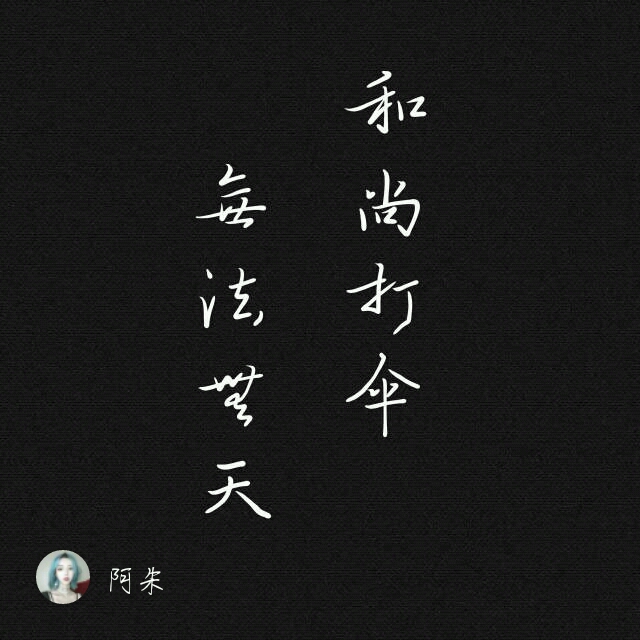 和尚打伞
無法無天
阿朱